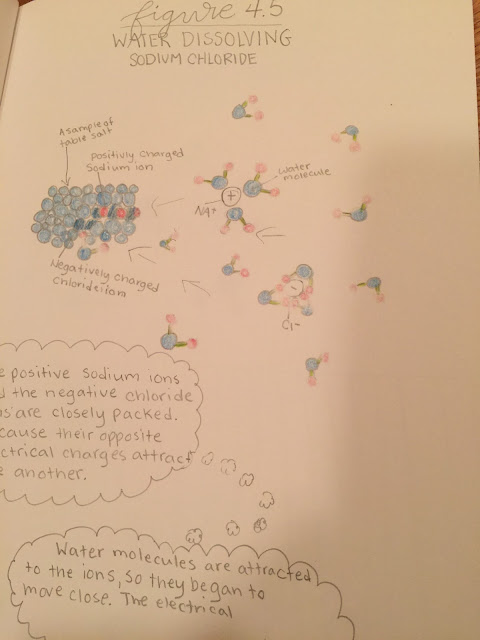 figure 4.5
WATER DISSOLVING
SODIUM CHLORIDE
A sample of
table salt
Positivly Charged
Sodium ion
Water
molecule
+
Na+
Negatively Charged
Chloride iom
-
Cl-
e positive sodium ions
d the negative chloride
ns are closely packed.
cause their opposite
ectrical charges attract
e another.
Water molecules are attracted
to the ions, so they began to
move close. The electrical